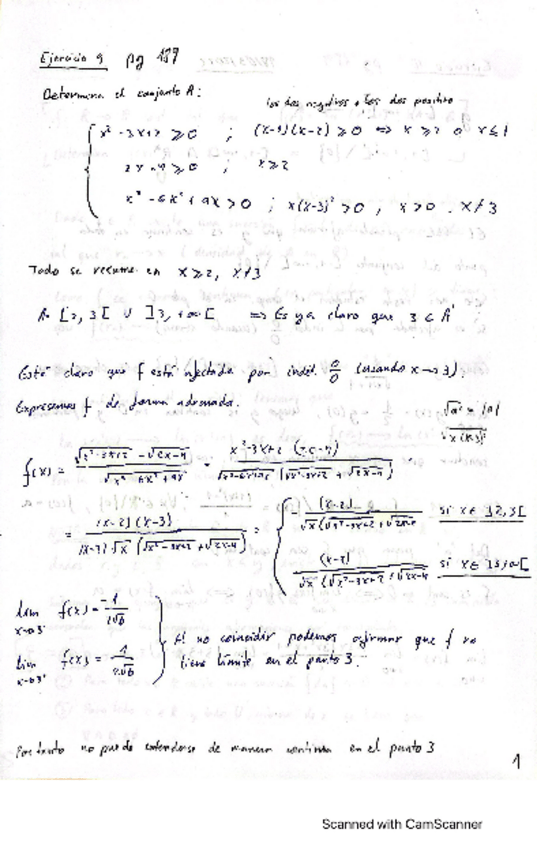 Ejercicio 9 pg 187
Determina el conjunto A:
los dos negativos o los dos positivo
x² - 3x + 2 ≥ 0 ; (x-1)(x-2) ≥ 0 ⇔ x ≥ 2 o x ≤ 1
2x - 4 ≥ 0 ; x ≥ 2
x³ - 6x² + 9x > 0 ; x(x-3)² > 0 , x > 0 . x ≠ 3
Todo se resume en x ≥ 2, x ≠ 3
A = [2, 3[ ∪ ]3, +∞[ ⇒ Es ya claro que 3 ∈ A'
Esté claro que f está afectada por indet. 0/0 (cuando x → 3).
Expresemos f de forma adecuada.
√a² = |a|
√x(x-3)²
f(x) = (√x²-3x+2 - √2x-4) / √x³-6x²+9x = x²-3x+2 / √x³-6x²+9x (√x²-3x+2 + √2x-4)
= (x-2)(x-3) / |x-3| √x (√x²-3x+2 + √2x-4) = (x-2) / √x (√x²-3x+2 + √2x-4) si x ∈ ]2,3[
(x-2) / √x (√x²-3x+2 + √2x-4) si x ∈ ]3,+∞[
lim x→3⁻ f(x) = -1 / 2√6
lim x→3⁺ f(x) = 1 / 2√6
Al no coincidir podemos afirmar que f no
tiene límite en el punto 3.
Por tanto no puede extenderse de manera continua en el punto 3
1
Scanned with CamScanner